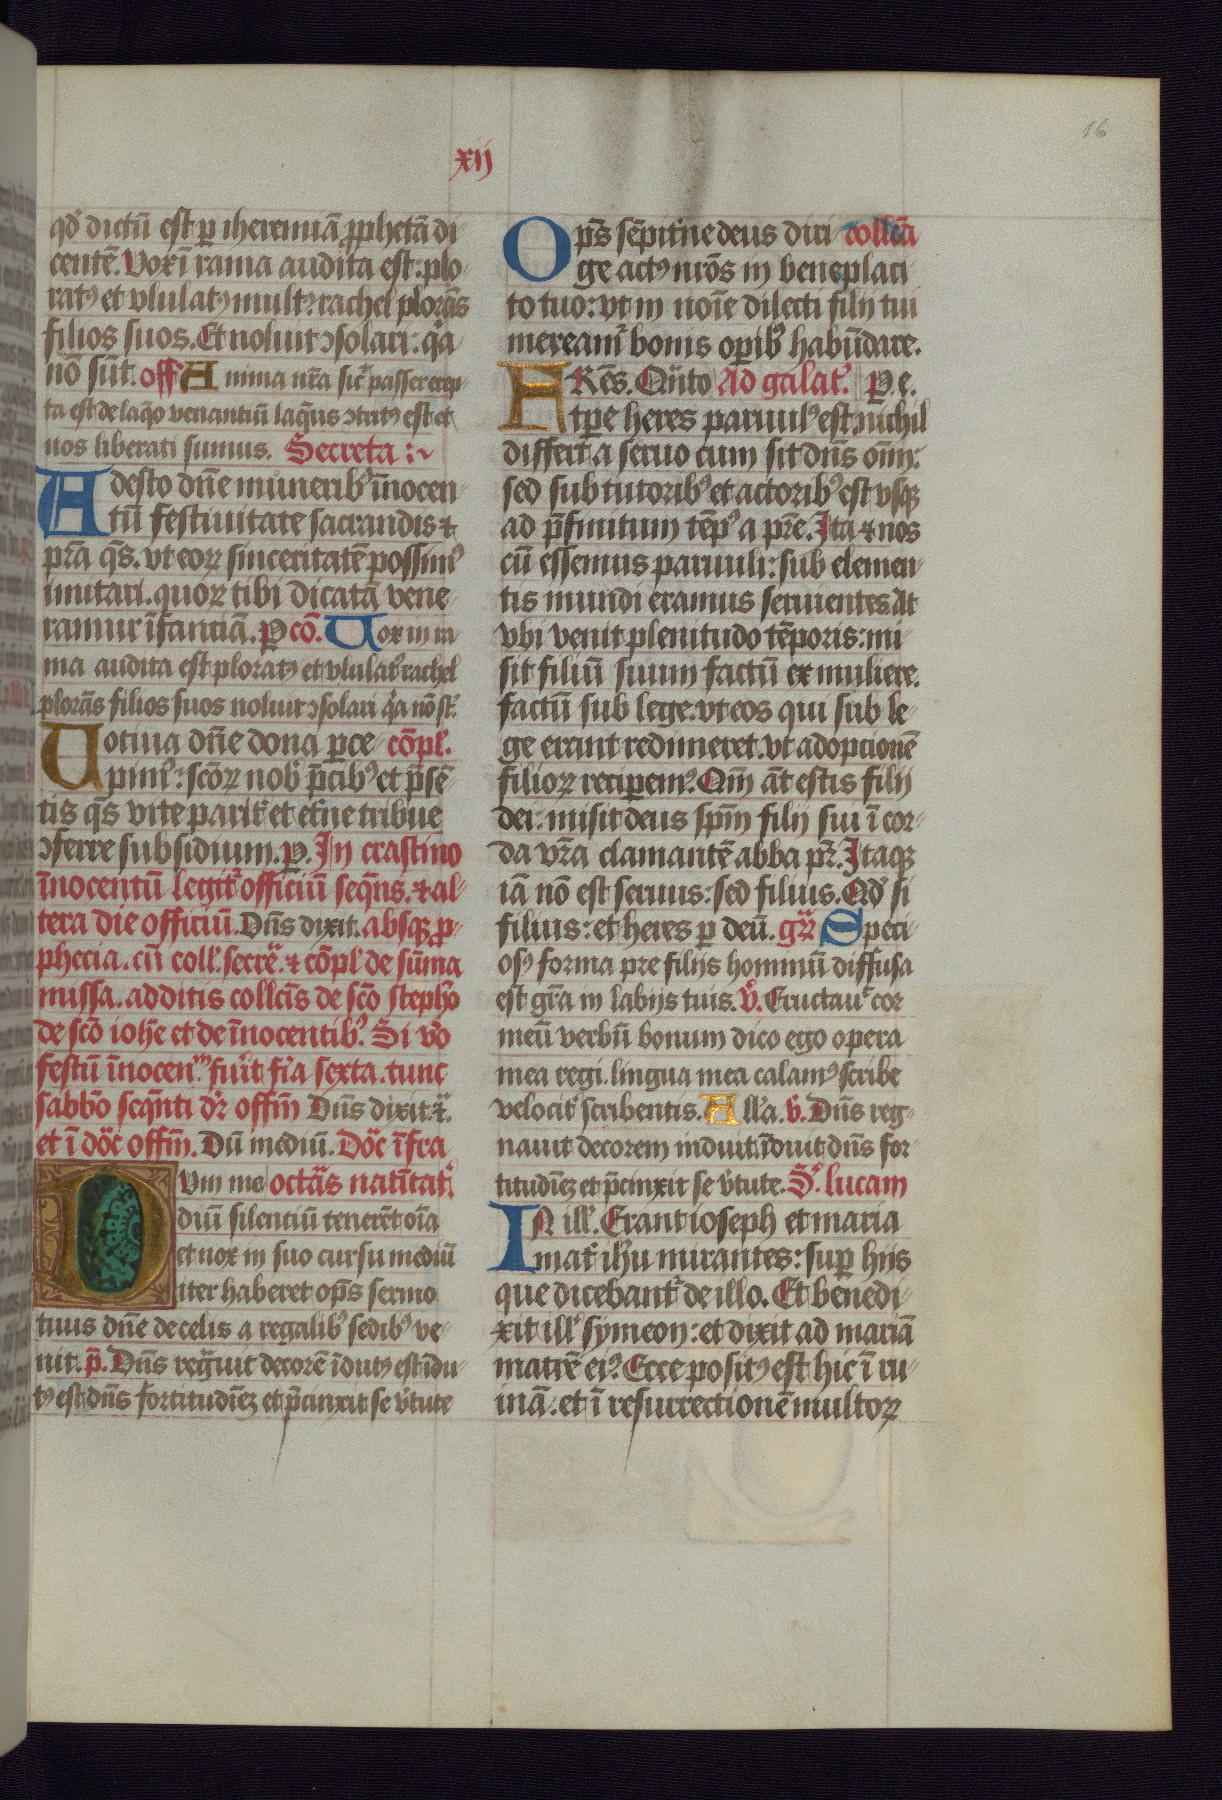 16
xij
qd' dictū est p iheremiā pphetā di
centē. Vox ī rama audita est: plo
rat9 et vlulat9 mult9: rachel plorās
filios suos. Et noluit ɔsolari: q̄a
nō sūt. off Anima nr̄a sic̄ passer erep
ta est de laq̄o venantiū laq̄us ɔtrit9 est et
nos liberati sumus. Secreta :~
Adesto dn̄e munerib9 īnocen
tū festiuitate sacrandis ⁊
pr̄a q̄s. vt eoꝝ sinceritatē possim9
imitari. quoꝝ tibi dicatā vene
ramur īfantiā. P. cō. Vox in ra
ma audita est plorat9 et vlulat9 rachel
plorās filios suos noluit ɔsolari q̄a nō st̄.
Votiua dn̄e dona perce cōpl'.
pim9: scōꝝ nob' p̄cib9 et p̄sē
tis q̄s vite parit' et et'ne tribue
ɔferre subsidium. p. In crastino
īnocentū legit' officiū seq̄ns. ⁊ al
tera die officiū. Dn̄s dixit. absq̨ p
phecia. cū coll'. secrē. ⁊ cōpl' de sūma
missa. additis collc̄is de scō stepho
de scō ioh̄e et de īnocentib9. Si v'o
festū īnocen. fu'it fr̄ia sexta. tunc
sabb'o seq̄nti d'r offm̄ Dn̄s dixit. ⁊.
et ī dōc offm̄. Dū mediū. Dōc īfra
Dum me octās natitat'
diū silentiū tenerēt oīa
et nox in suo cursu mediū
iter haberet op̄s sermo
tuus dn̄e de celis a regalib9 sedib9 ve
nit. p̄. Dn̄s reḡuit decorē īdut9 est īdu
t9 est dn̄s fortitudinē et p̄cinxit se v'tute
Op̄s sēpit'ne deus diri collc̄a
ge act9 nr̄os in beneplaci
to tuo: vt in noīe dilecti filij tui
meream' bonis opib9 habūdare.
FRēs. Qn̄to Ad galat'. P. e.
tpe heres paruul9 est. nichil
differt a seruo cum sit dn̄s om̄:
sed sub tutorib9 et actorib9 est vsq̨
ad p̄finitum tēp9 a pr̄e. Ita ⁊ nos
cū essemus paruuli: sub elemen
tis mundi eramus seruientes. At
vbi venit plenitudo tēporis: mi
sit filiū suum factū ex muliere.
factū sub lege. vt eos qui sub le
ge erant redimeret. vt adoptionē
filioꝝ reciperem9. Qm̄ āt estis filij
dei: misit deus spm̄ filij sui ī cor
da vr̄a clamantē abba pr̄. Itaq̨
iā nō est seruus: sed filius. Qd' si
filius: et heres p deū. gr̄ Speci
os9 forma pre filijs hominū diffusa
est gr̄a in labijs tuis. v̊. Eructau' cor
meū verbū bonum dico ego opera
mea regi. lingua mea calam9 scribe
velocit' scribentis. Alla. v̄. Dn̄s reg
nauit decorem induit īduit dn̄s for
titudinē et p̄cinxit se v'tute. S. lucam
IN ill'. Erant ioseph et maria
mat' ih'u mirantes: sup hijs
que dicebant' de illo. Et benedi
xit ill' symeon: et dixit ad mariā
matrē ei9. Ecce posit9 est hic ī ru
inā. et ī resurrectionē multoꝝ